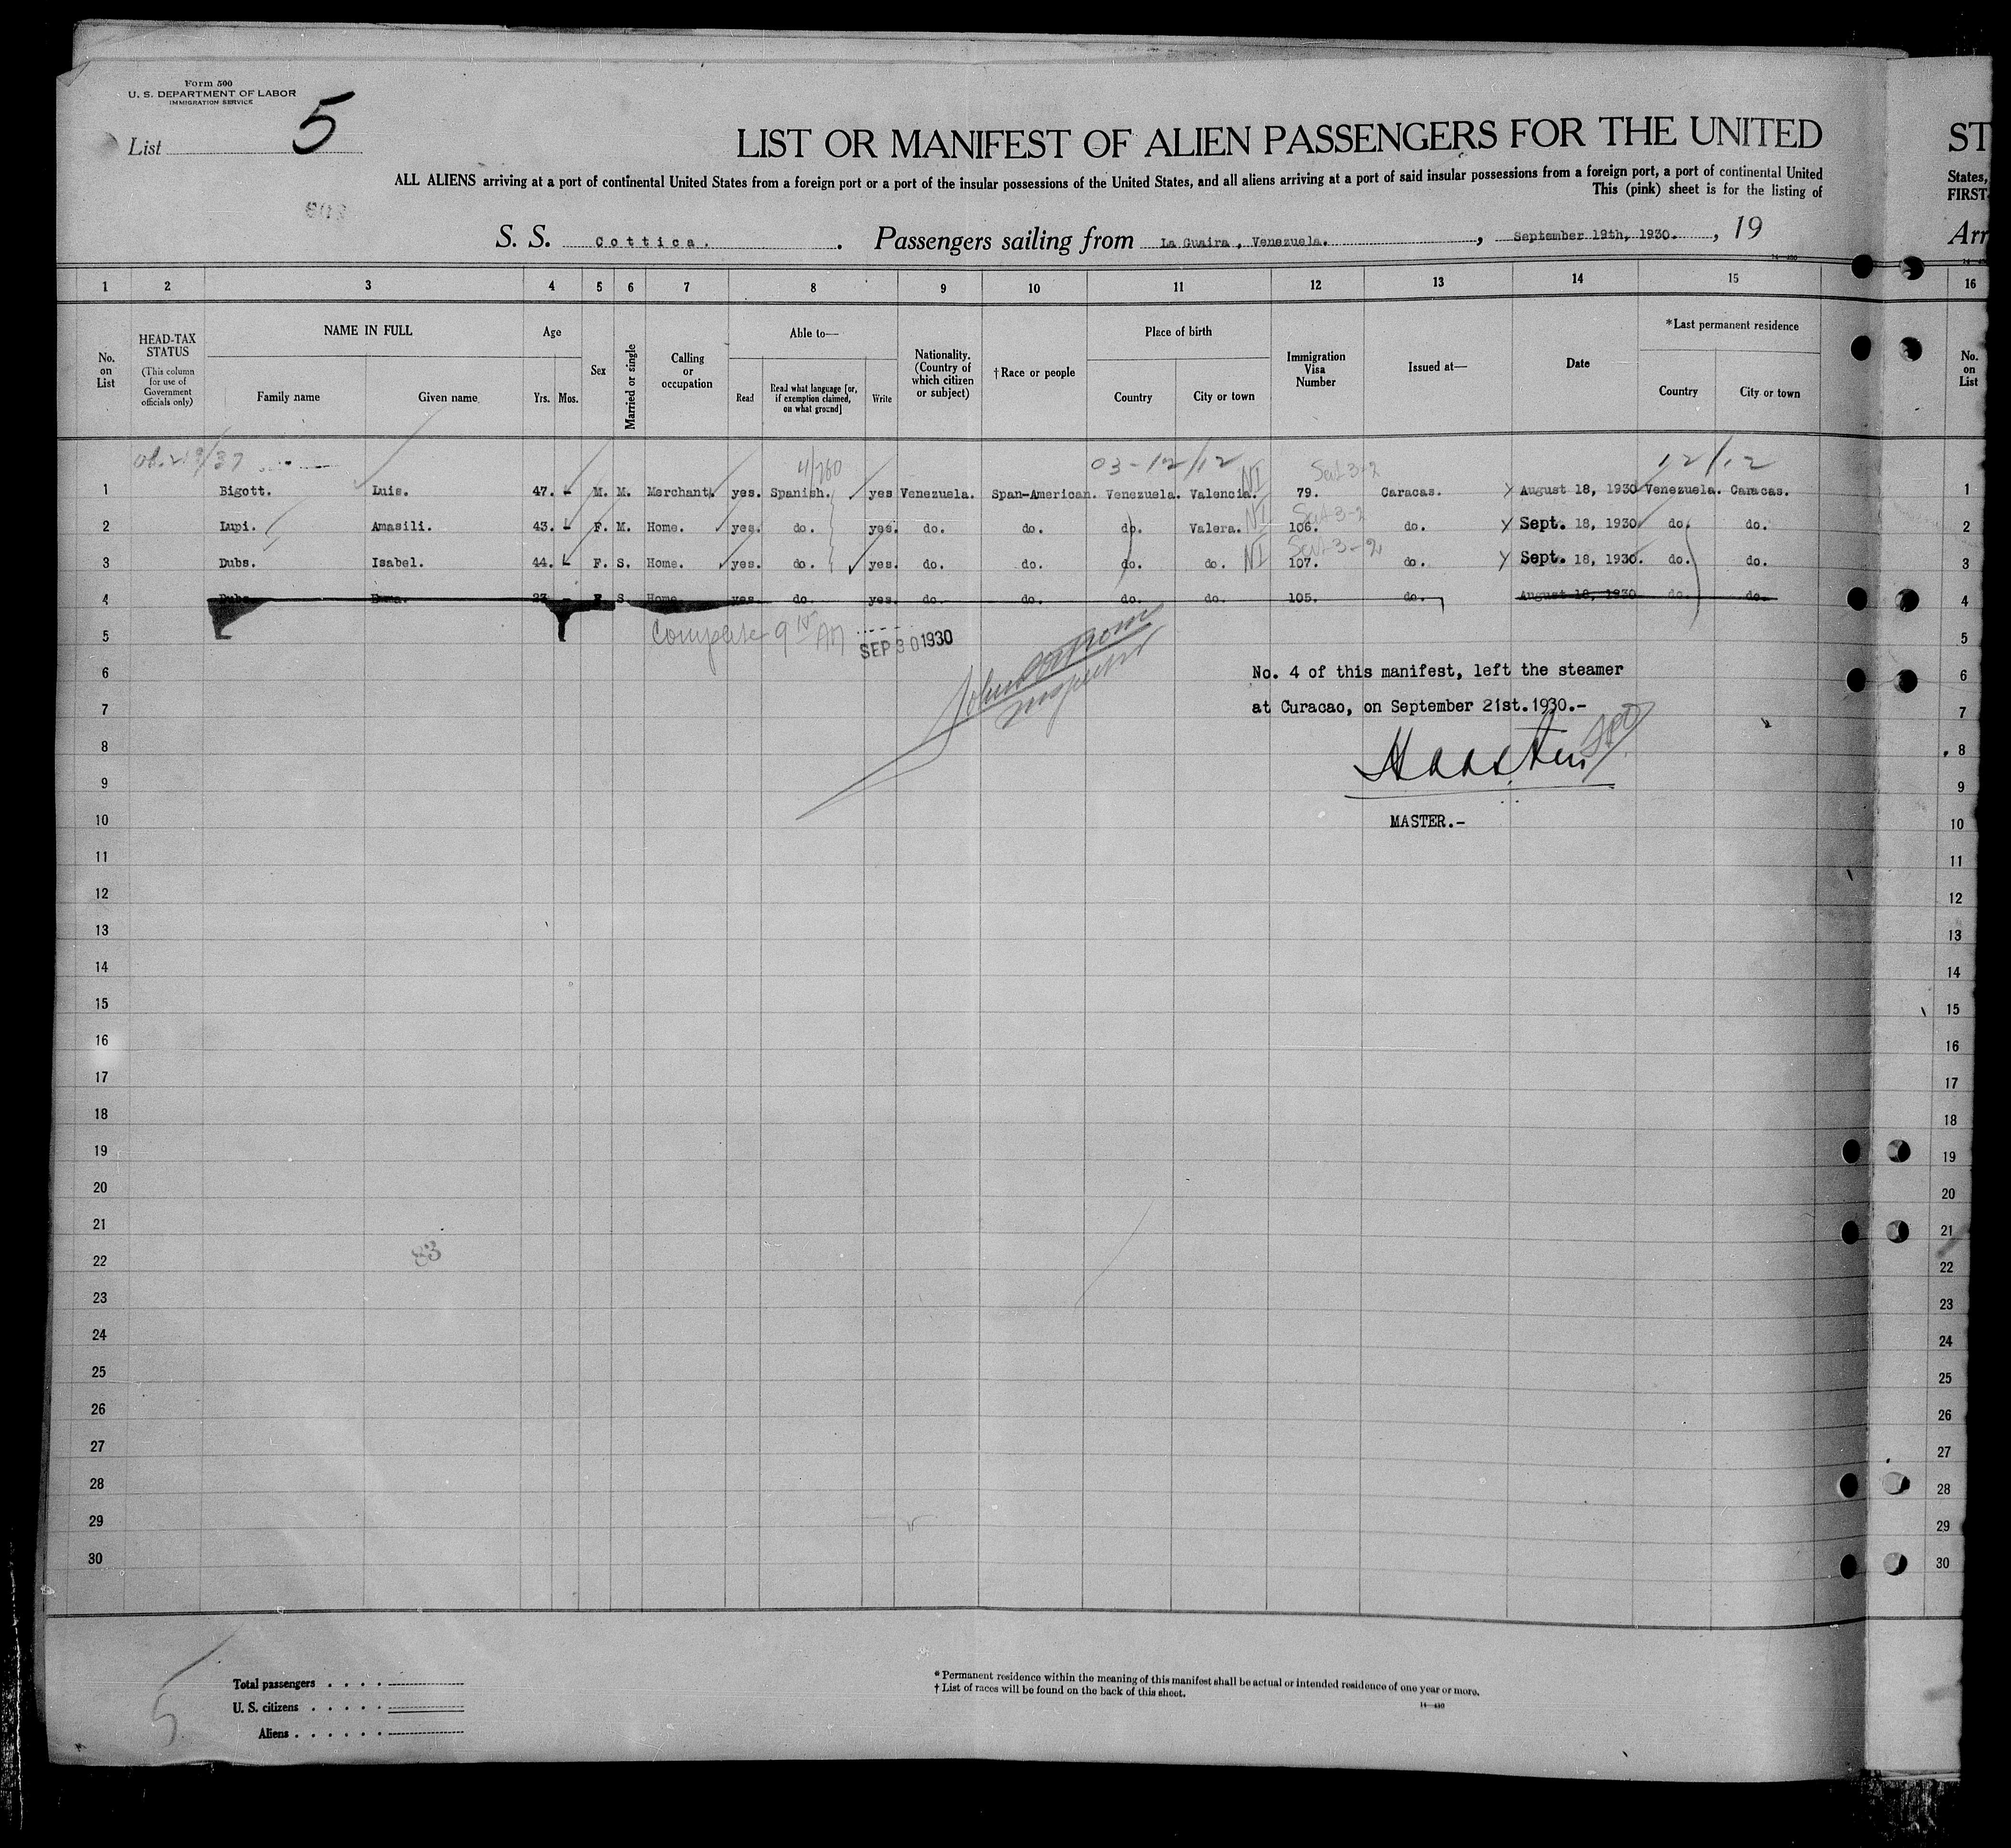 Form 500
U. S. DEPARTMENT OF LABOR
IMMIGRATION SERVICE
List 5
LIST OR MANIFEST OF ALIEN PASSENGERS FOR THE UNITED
ST
ALL ALIENS arriving at a port of continental United States from a foreign port or a port of the insular possessions of the United States, and all aliens arriving at a port of said insular possessions from a foreign port, a port of continental United
States,
This (pink) sheet is for the listing of
FIRST-
S. S. Cottica. . Passengers sailing from La Guaira, Venezuela. , September 19th, 1930. , 19
Arr
1 2 3 4 5 6 7 8 9 10 11 12 13 14 15 16
No. on List
HEAD-TAX STATUS
(This column for use of Government officials only)
NAME IN FULL
Family name Given name
Age
Yrs. Mos.
Sex
Married or single
Calling or occupation
Able to—
Read
Read what language [or, if exemption claimed, on what ground]
Write
Nationality. (Country of which citizen or subject)
†Race or people
Place of birth
Country City or town
Immigration Visa Number
Issued at—
Date
*Last permanent residence
Country City or town
No. on List
4/280 03-12/12 12/12
1 Bigott. Luis. 47. - M. M. Merchant. yes. Spanish. yes Venezuela. Span-American. Venezuela. Valencia. NI 79. Caracas. August 18, 1930 Venezuela. Caracas. 1
2 Lupi. Amasili. 43. - F. M. Home. yes. do. yes. do. do. do. Valera. NI 106. do. Sept. 18, 1930 do. do. 2
3 Dubs. Isabel. 44. - F. S. Home. yes. do. yes. do. do. do. do. NI 107. do. Sept. 18, 1930. do. do. 3
4 Dubs. 23 - F S Home yes do yes. do do. do. do. 105. do. August 18, 1930 do. do. 4
5 Complete 9 AM SEP 30 1930 5
6 No. 4 of this manifest, left the steamer 6
7 at Curacao, on September 21st.1930.- 7
8 8
9 9
10 MASTER.- 10
11 11
12 12
13 13
14 14
15 15
16 16
17 17
18 18
19 19
20 20
21 21
22 83 22
23 23
24 24
25 25
26 26
27 27
28 28
29 29
30 30
Total passengers . . . .
U. S. citizens . . . . .
Aliens . . . . . .
5
* Permanent residence within the meaning of this manifest shall be actual or intended residence of one year or more.
† List of races will be found on the back of this sheet.